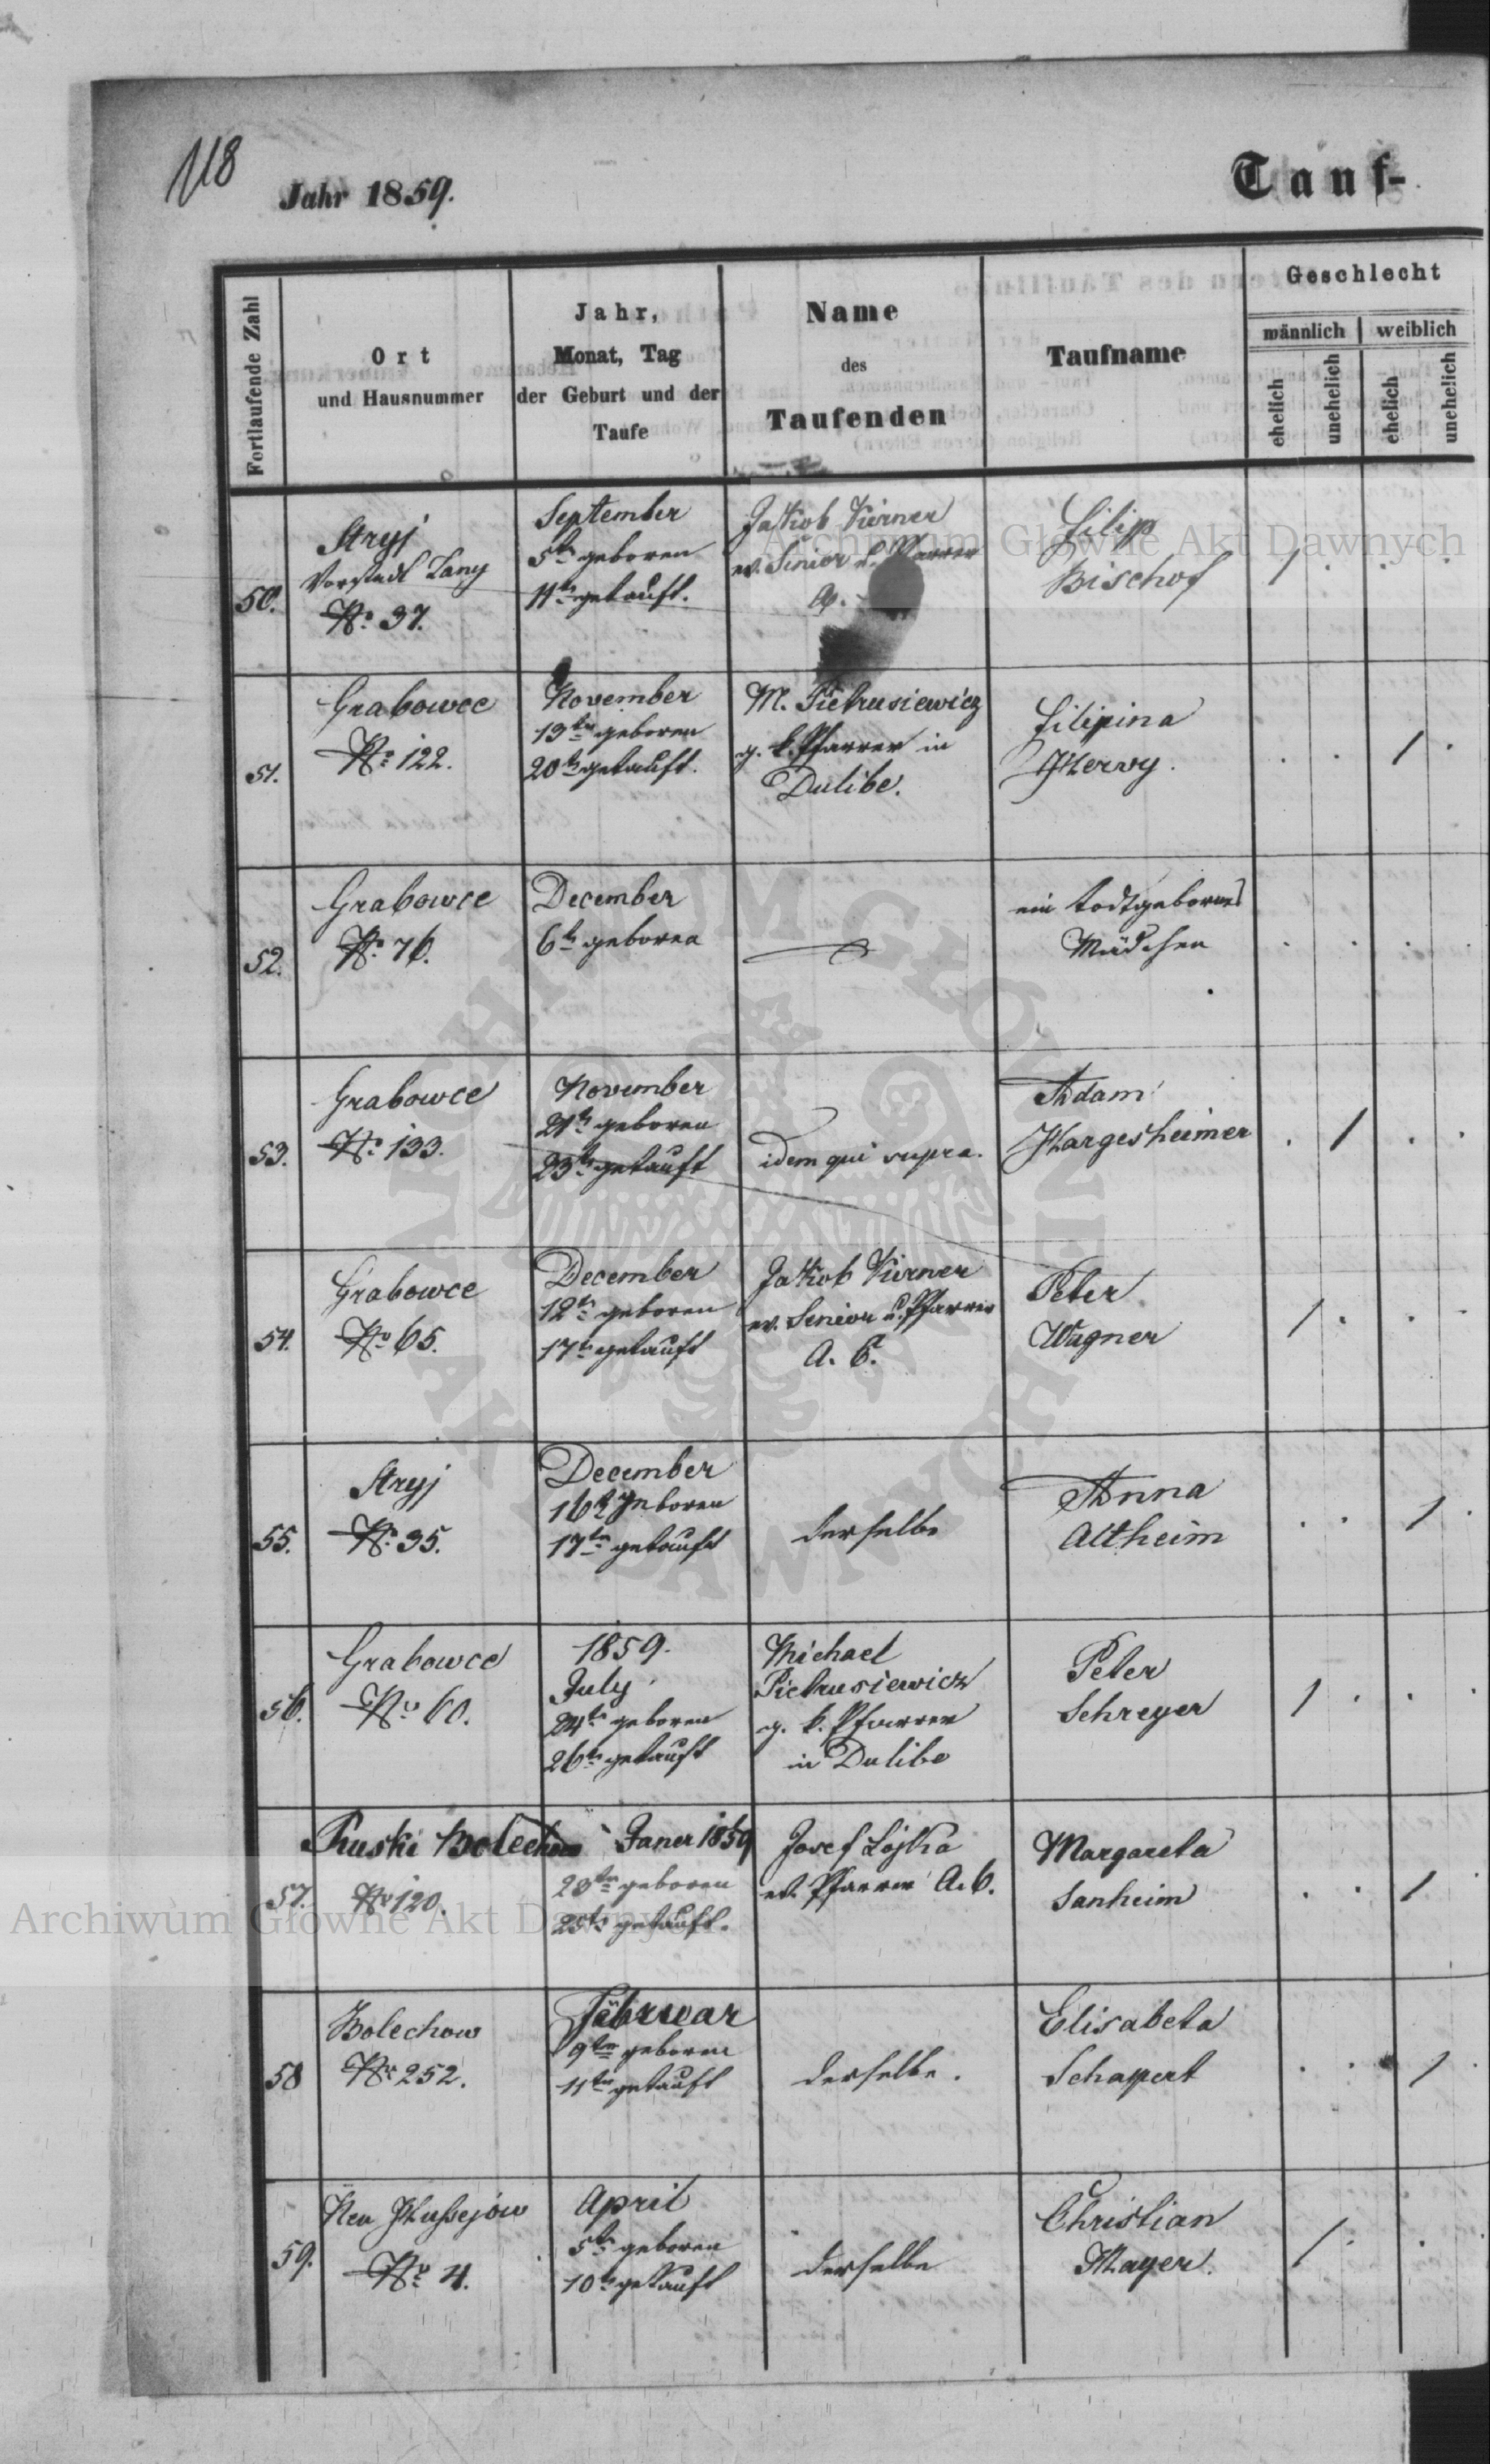 118
Jahr 1859.
Tauf-
Fortlaufende Zahl
Ort
und Hausnummer
Jahr,
Monat, Tag
der Geburt und der
Taufe
Name
des
Taufenden
Taufname
Geschlecht
männlich
weiblich
ehelich
unehelich
ehelich
unehelich
50.
Stryj
Vorstadt Lany
No. 37.
September
5tn geboren
11tn getauft.
Jakob Kierner
ev. Senior u. Pfarrer
A.
Filip
Bischof
1 . . .
51.
Grabowce
No. 122.
November
19tn geboren
20tn getauft.
M. Pietrusiewicz
g. k. Pfarrer in
Dulibe.
Filipina
Herwy.
. . 1 .
52.
Grabowce
No. 76.
December
6tn geboren
ein todtgebornes
Mädchen
. . . .
53.
Grabowce
No. 133.
November
21tn geboren
23tn getauft
idem qui supra.
Adam
Hargesheimer
. 1 . .
54.
Grabowce
No 65.
December
12tn geboren
17tn getauft
Jakob Kierner
ev. Senior u. Pfarrer
A. C.
Peter
Wagner
1 . . .
55.
Stryj
No. 35.
December
16tn geboren
17tn getauft
derselbe
Anna
Altheim
. . 1 .
56.
Grabowce
No 60.
1859.
July
24tn geboren
26tn getauft
Michael
Pietrusiewicz
g. k. Pfarrer
in Dulibe
Peter
Schreyer
1 . . .
57.
Ruski Bolechow
No 120.
Janer 1859
23tn geboren
25tn getauft.
Josef Lojka
ev. Pfarrer A. C.
Margareta
Sanheim
. . 1 .
58
Bolechow
No 252.
Februar
9tn geboren
11tn getauft
derselbe.
Elisabeta
Schappert
. . 1 .
59.
Neu
No. 4.
April
5tn geboren
10tn getauft
derselbe
Christian
Mayer.
1 . . .
Archiwum Główne Akt Dawnych
Archiwum Główne Akt Dawnych
ARCHIWUM GŁÓWNE AKT DAWNYCH